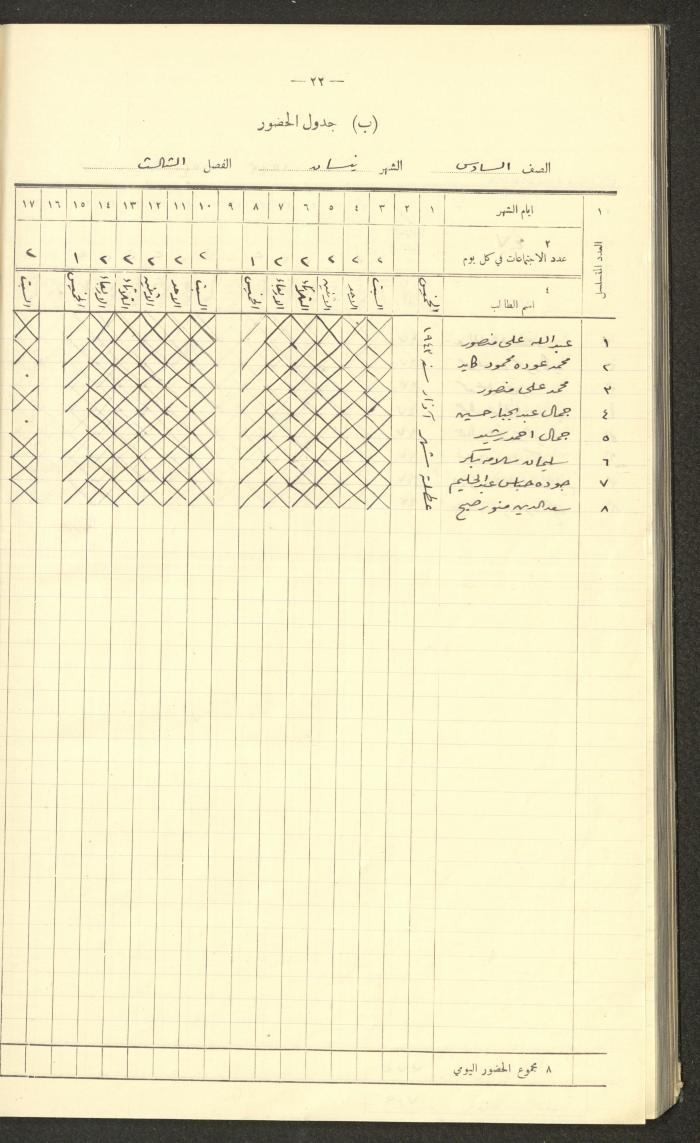 — ٢٢ —
(ب) جدول الحضور
الصف السادس الشهر نيسان الفصل الثالث
١ ايام الشهر ١ ٢ ٣ ٤ ٥ ٦ ٧ ٨ ٩ ١٠ ١١ ١٢ ١٣ ١٤ ١٥ ١٦ ١٧
العدد المتسلسل
٢ عدد الاجتماعات في كل يوم ٢ ٢ ٢ ٢ ٢ ١ ٢ ٢ ٢ ٢ ٢ ١ ٢
٤ اسم الطالب الخميس السبت الاحد الاثنين الثلاثاء الاربعاء الخميس السبت الاحد الاثنين الثلاثاء الاربعاء الخميس السبت
عطلة شهر آذار سنة ١٩٤٣
١ عبد الله علي منصور
٢ محمد عوده محمود كايد
٣ محمد علي منصور
٤ جمال عبد الجبار حسين
٥ جمال احمد رشيد
٦ سليمان سلامه بكر
٧ جوده عباس عبد الحليم
٨ سعد الدين منور صبح
٨ مجموع الحضور اليومي